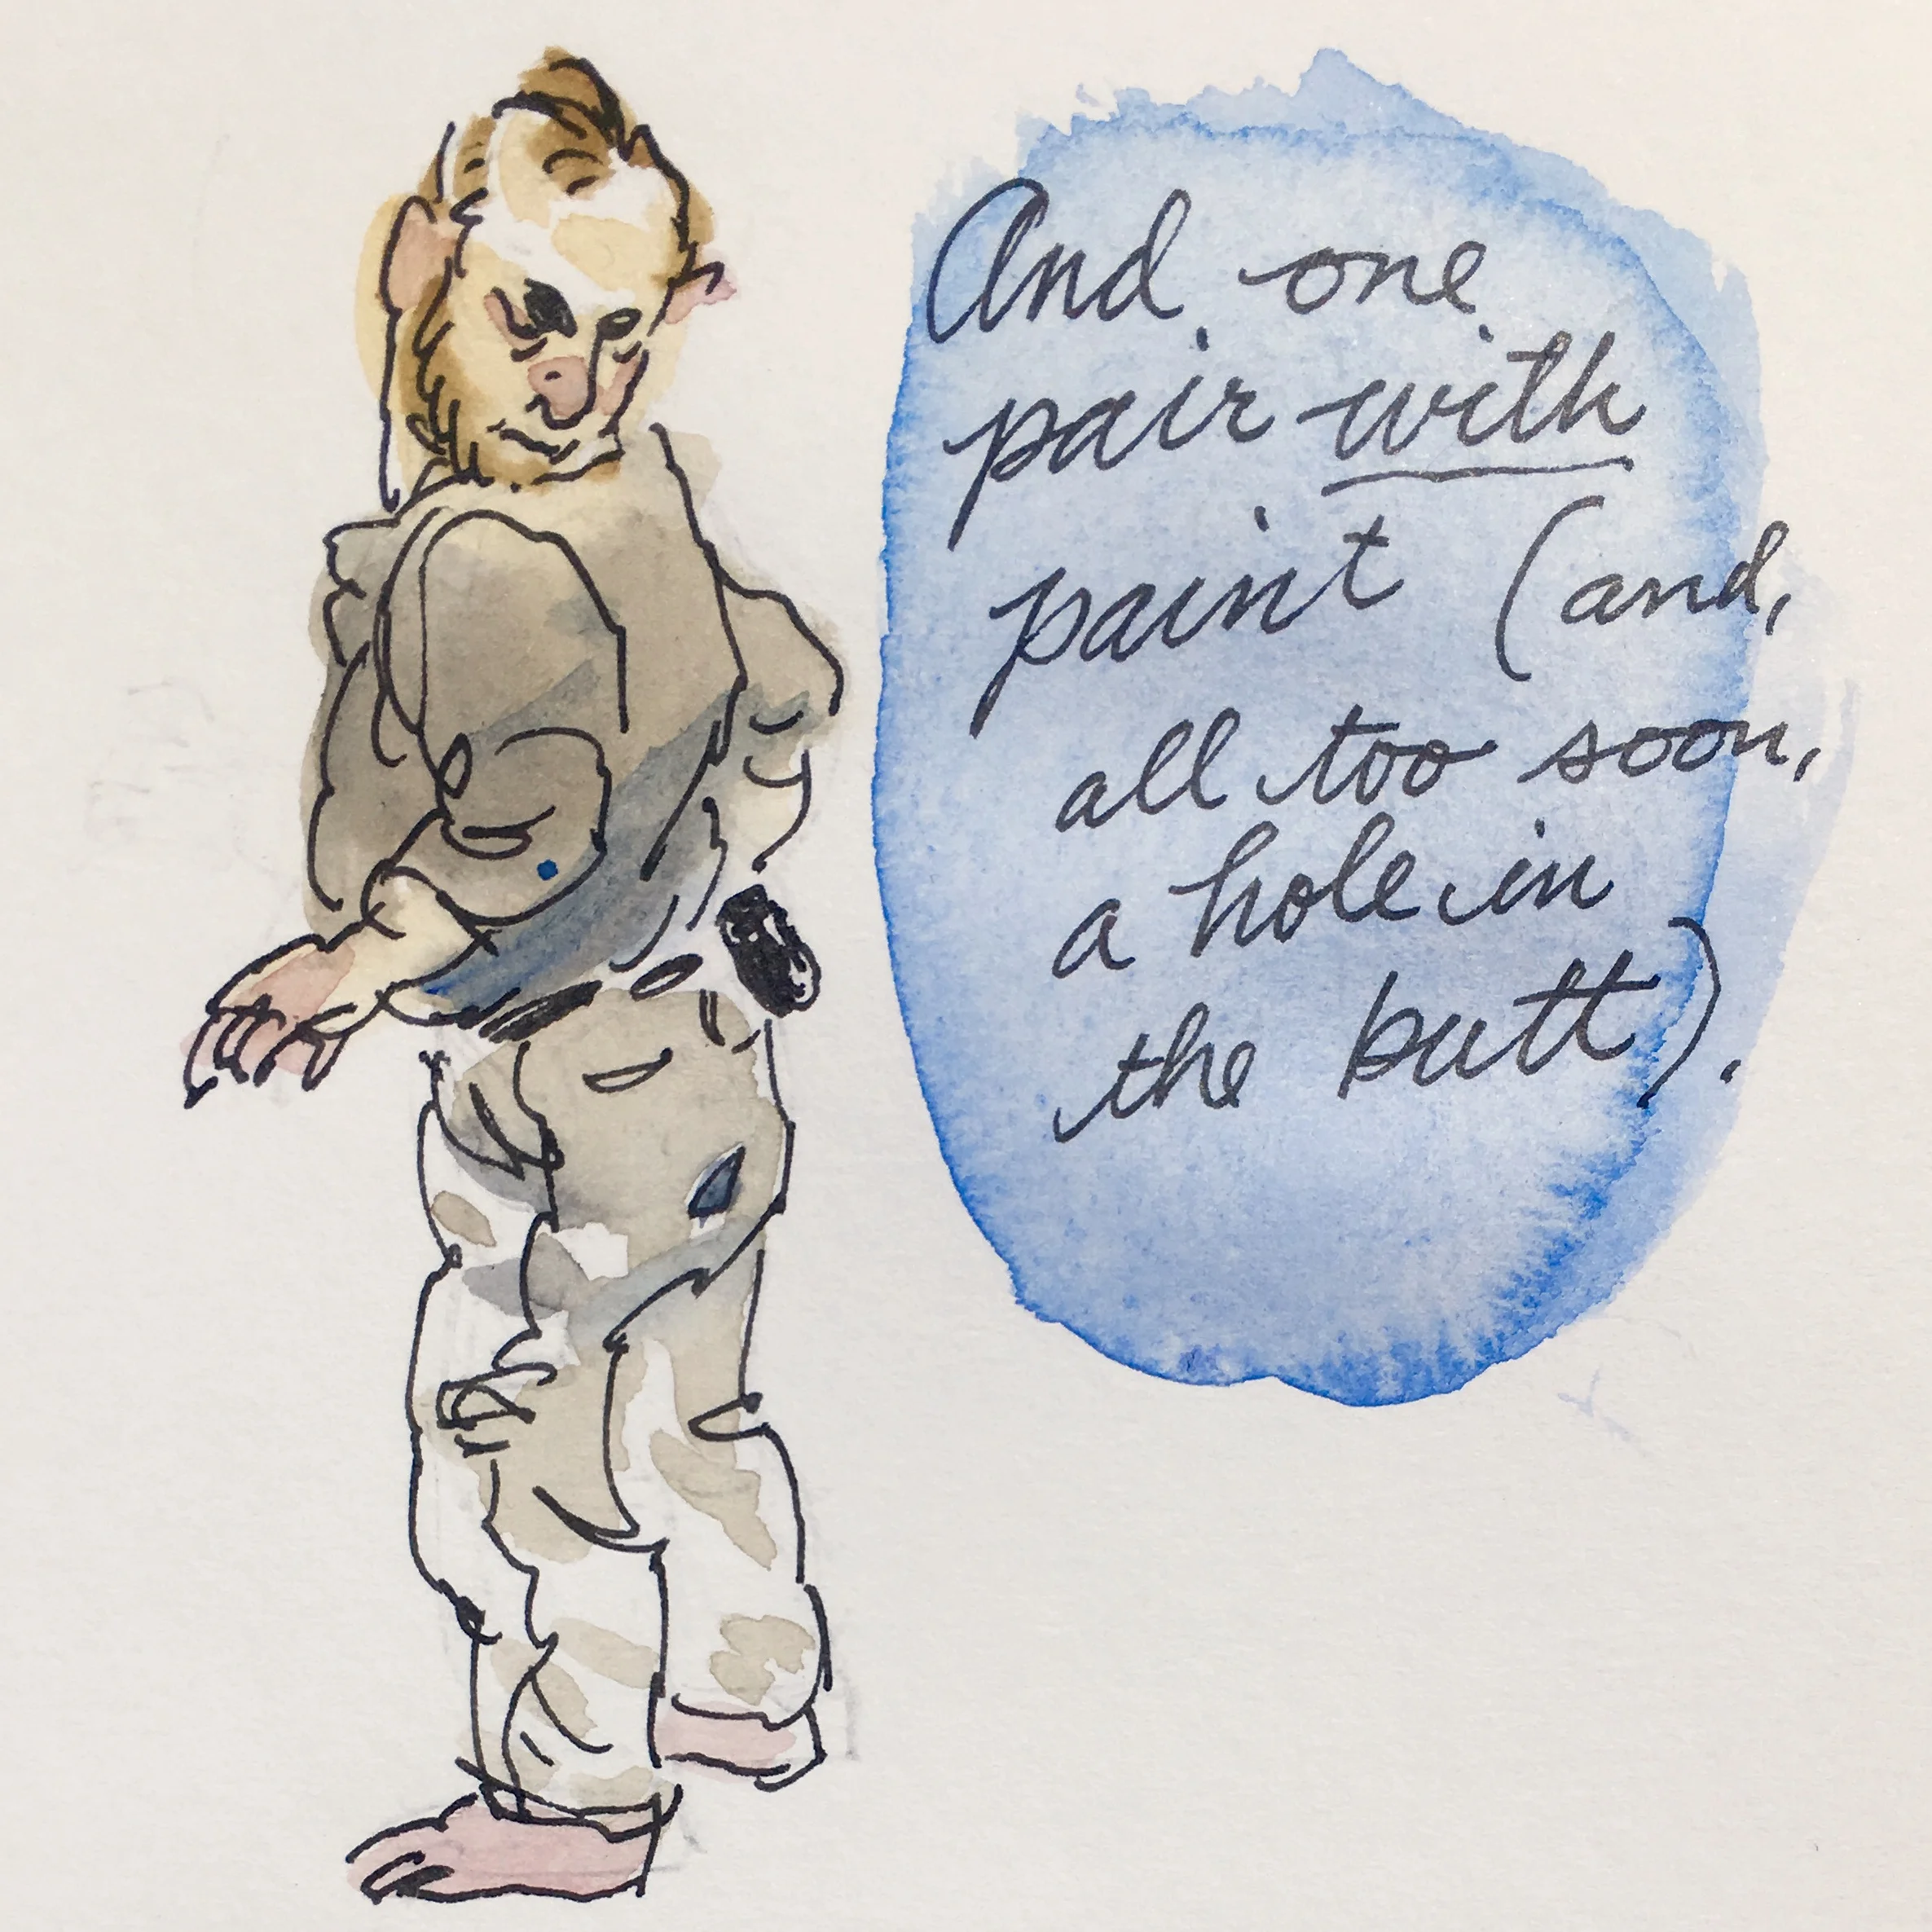 And one
pair with
paint (and,
all too soon,
a hole in
the butt).